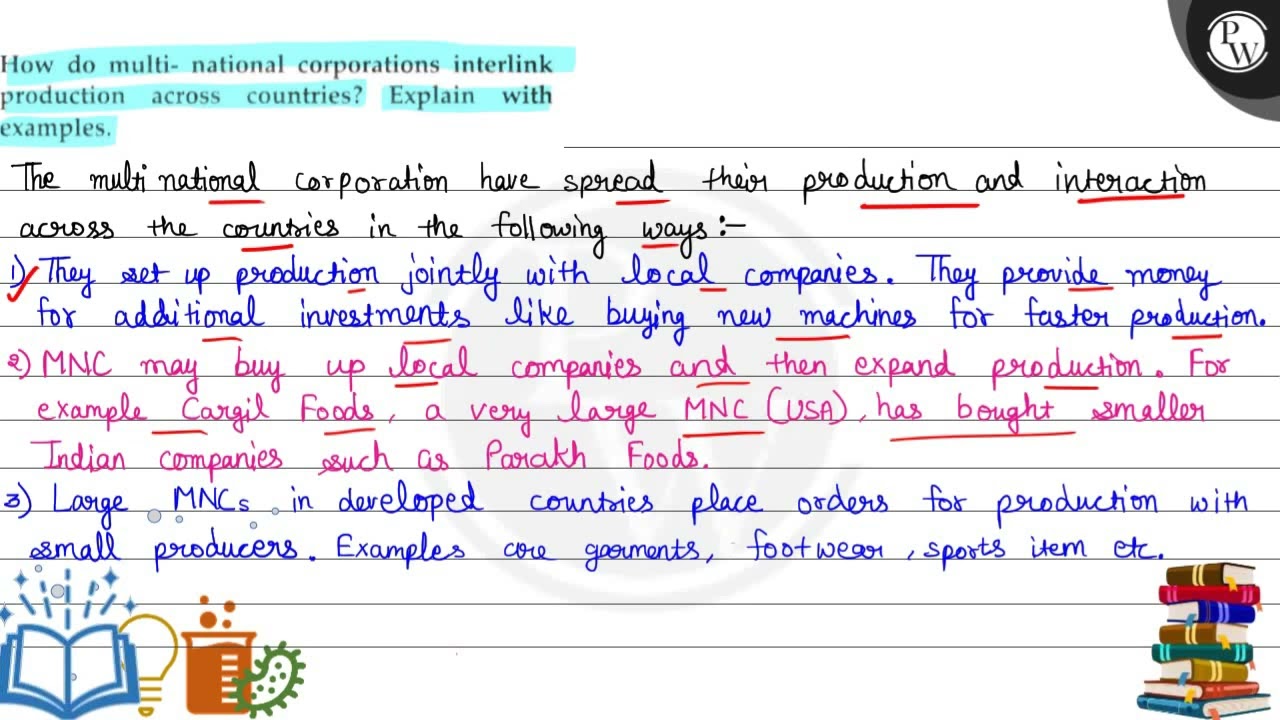 How do multi- national corporations interlink
production across countries? Explain with
examples.
PW
The multi national corporation have spread their production and interaction
across the countries in the following ways :-
1) They set up production jointly with local companies. They provide money
for additional investments like buying new machines for faster production.
2) MNC may buy up local companies and then expand production. For
example Cargil Foods, a very large MNC (USA), has bought smaller
Indian companies such as Parakh Foods.
3) Large MNCs in developed countries place orders for production with
small producers. Examples are garments, footwear, sports item etc.